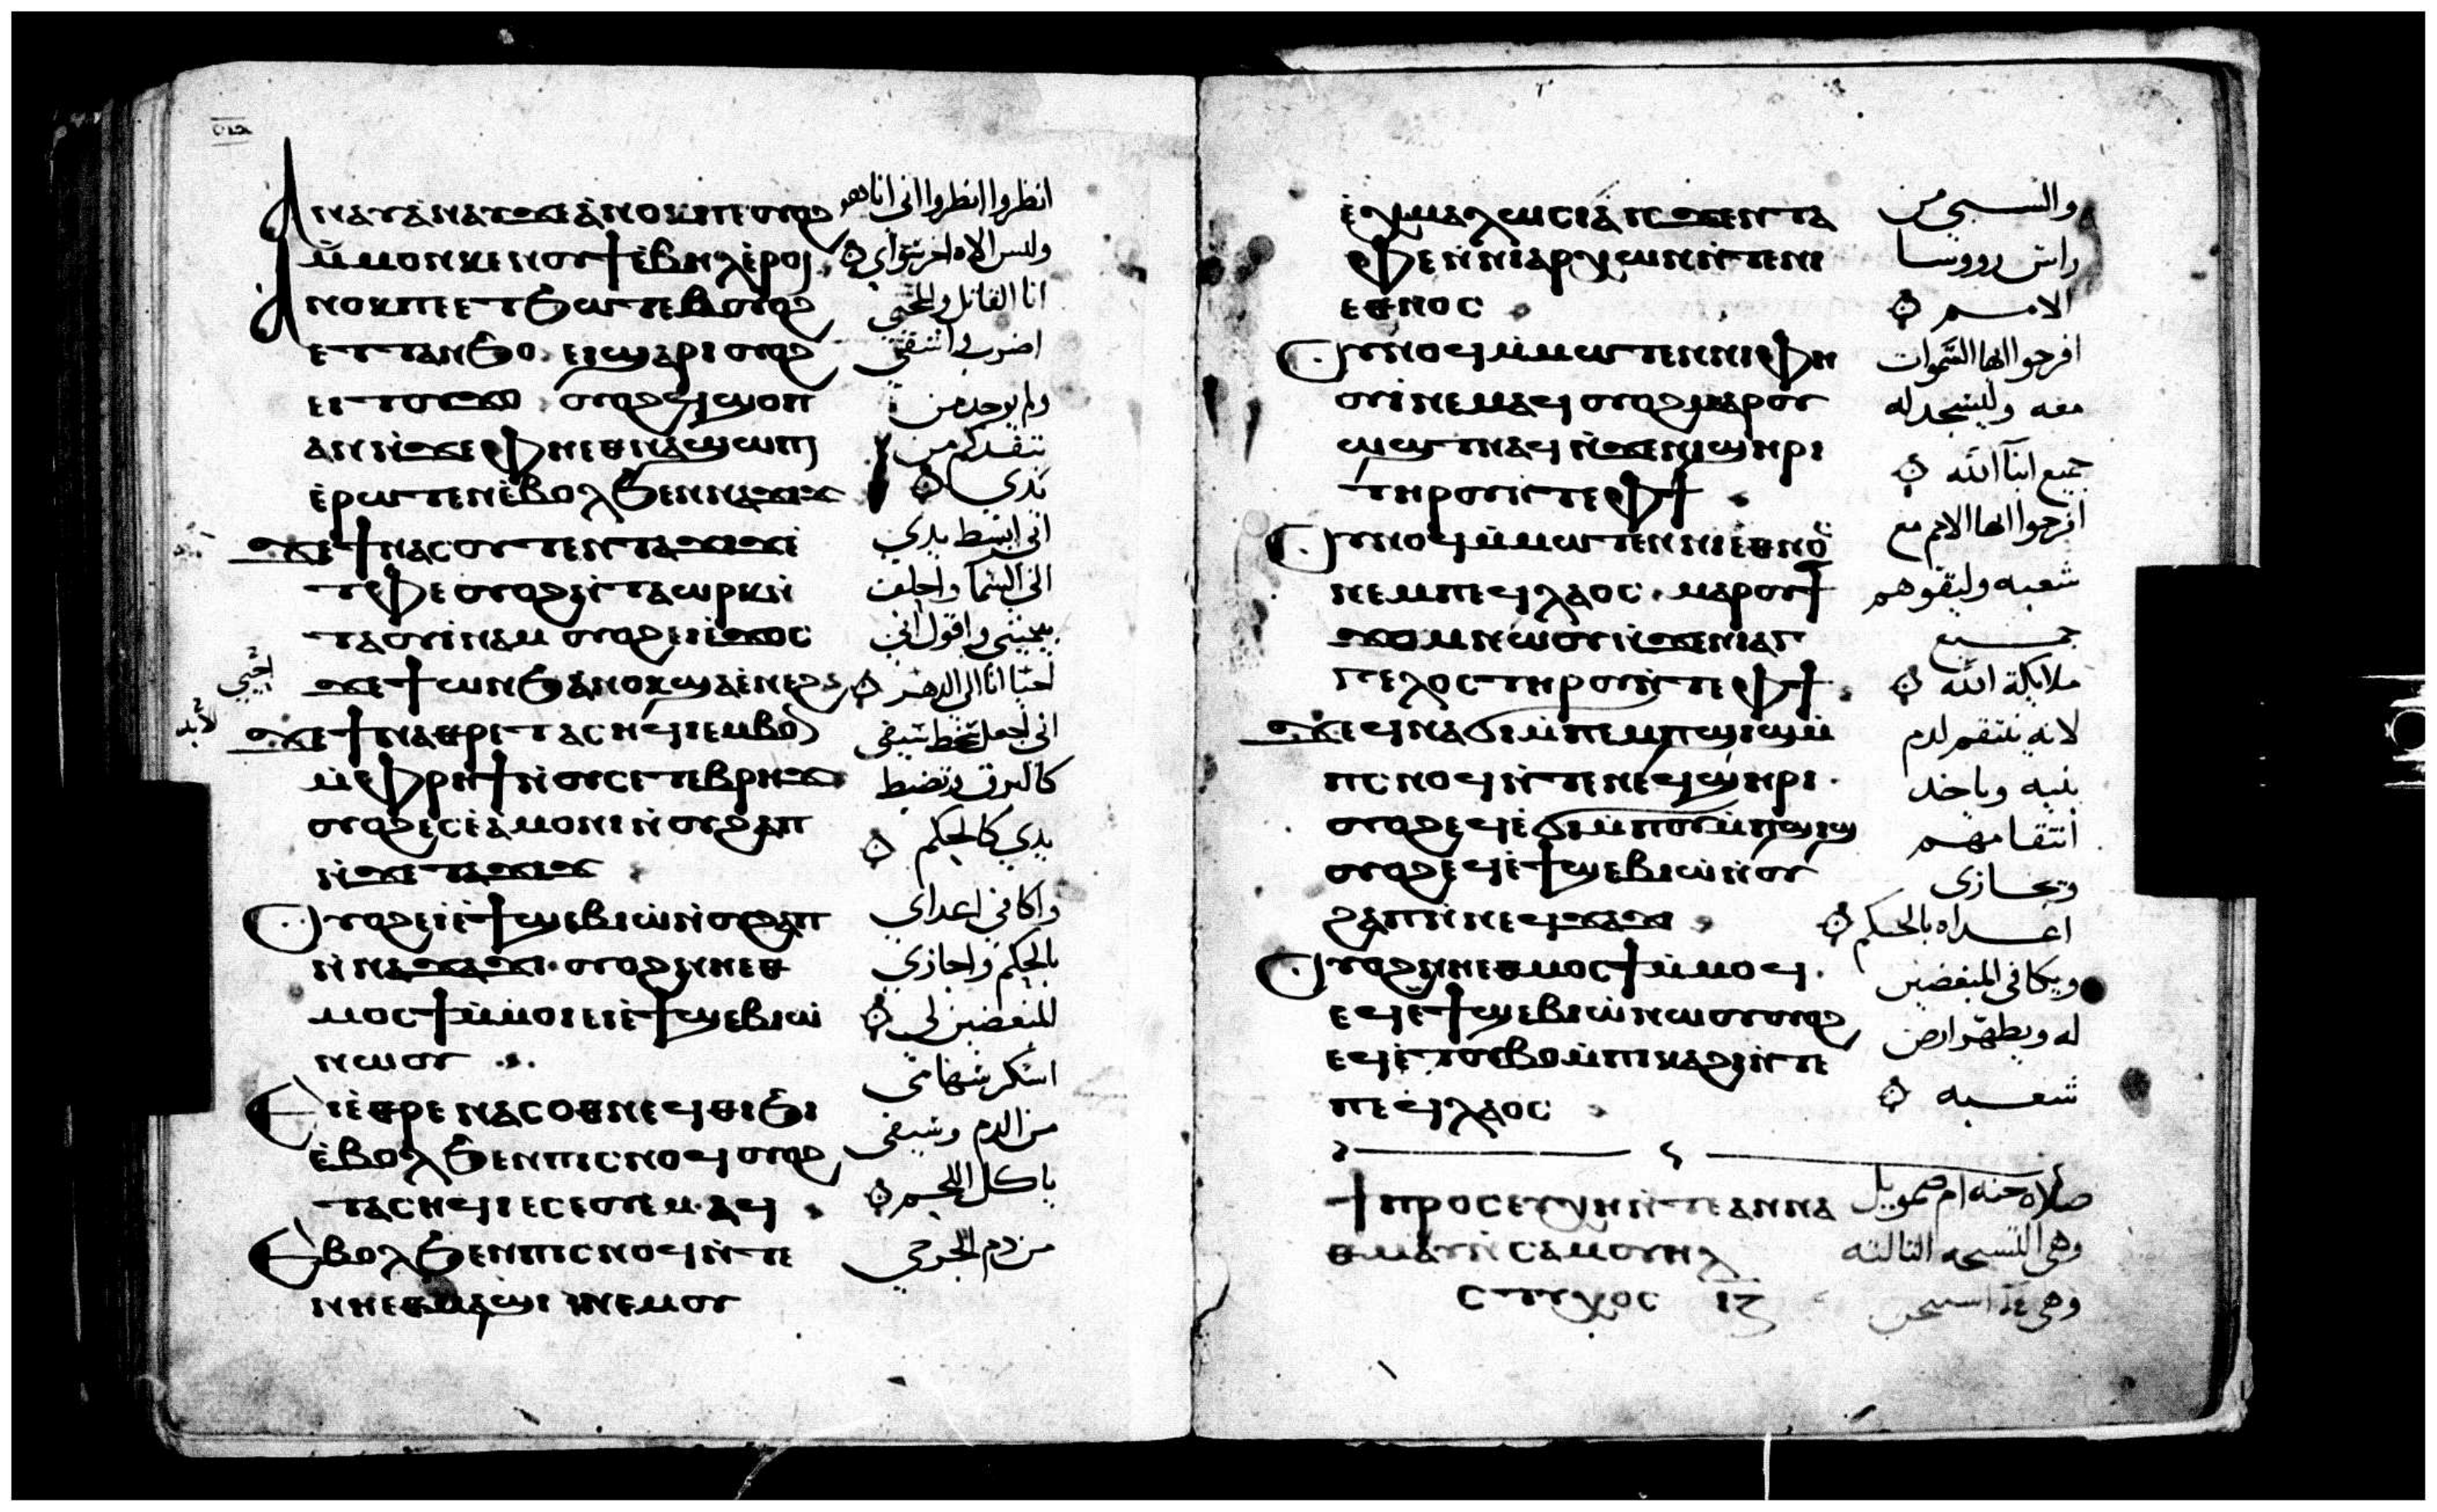 ⲁⲛⲁⲩ ⲁⲛⲁⲩ ϫⲉ ⲁⲛⲟⲕ ⲡⲉ ⲟⲩⲟϩ
ⲙ̀ⲙⲟⲛ ⲕⲉⲛⲟⲩϯ ⲉ̀ⲃⲏⲗ ⲉ̀ⲣⲟⲓ
ⲁⲛⲟⲕ ⲡⲉⲧϧⲱⲧⲉⲃ ⲟⲩⲟϩ
ⲉⲧⲧⲁⲛϧⲟ. ⲉⲓϣⲁⲣⲓ ⲟⲩⲟϩ
ⲉⲓⲧⲟⲩϫⲟ ⲟⲩⲟϩ ϥ̀ϣⲟⲡ
ⲁⲛ ⲛ̀ϫⲉ ⲫⲏⲉⲑⲛⲁϣⲱⲡⲓ
ⲉ̀ⲣⲱⲧⲉⲛ ⲉ̀ⲃⲟⲗ ϧⲉⲛ ⲛⲁϫⲓϫ
ϫⲉ ϯⲛⲁⲥⲟⲩⲧⲉⲛ ⲧⲁϫⲓϫ ⲉ̀
ⲧⲫⲉ ⲟⲩⲟϩ ⲛ̀ⲧⲁⲱⲣⲕ ⲛ̀
ⲧⲁⲟⲩⲓⲛⲁⲙ ⲟⲩⲟϩ ⲉⲓⲉ̀ϫⲟⲥ
ϫⲉ ϯⲱⲛϧ ⲁⲛⲟⲕ ϣⲁ ⲉ̀ⲛⲉϩ
ϫⲉ ϯⲛⲁⲑⲣⲉ ⲧⲁⲥⲏϥⲓ ⲉⲙⲃⲟⲛ
ⲙ̀ⲫⲣⲏϯ ⲛ̀ⲟⲩⲥⲉⲧⲉⲃⲣⲏϫ
ⲟⲩⲟϩ ⲉⲥⲉ̀ⲁⲙⲟⲛⲓ ⲛ̀ⲟⲩϩⲁⲡ
ⲛ̀ϫⲉ ⲧⲁϫⲓϫ
ⲟⲩⲟϩ ⲉⲓⲉ̀ϯϣⲉⲃⲓⲱ ⲛ̀ⲟⲩϩⲁⲡ
ⲛ̀ⲛⲁϫⲁϫⲓ. ⲟⲩⲟϩ ⲛⲏⲉⲑ
ⲙⲟⲥϯ ⲙ̀ⲙⲟⲓ ⲉⲓⲉ̀ϯϣⲉⲃⲓⲱ
ⲛⲱⲟⲩ
ⲉⲓⲉ̀ⲑⲣⲉ ⲛⲁⲥⲟⲑⲛⲉϥ ⲑⲓϧⲓ
ⲉ̀ⲃⲟⲗ ϧⲉⲛ ⲡⲓⲥⲛⲟϥ ⲟⲩⲟϩ
ⲧⲁⲥⲏϥⲓ ⲉⲥⲉⲟⲩⲉⲙ ⲁϥ
ⲉⲃⲟⲗ ϧⲉⲛ ⲡⲓⲥⲛⲟϥ ⲛ̀ⲧⲉ
ⲛⲏⲉⲑⲙⲁϣⲓ ⲛⲉⲙ ⲟⲩ
انظروا انظروا انى انا هو
وليس الاه اخر سواي
انا القاتل والمحيي
اضرب واشفي
ولم يوجد من
ينقدكم من
يدي
انى ابسط يدي
الى السما واحلف
بيميني واقول انى
احيا انا الى الدهر
انى اجعل سيفى
كالبرق وتضبط
يدي كالحكم
واكافي اعداي
بالحكم واجازي
المبغضين لى
اسكر سهامى
من الدم وسيفى
ياكل اللحم
من دم الجرحي
احيي
لابد
ⲉⲭⲙⲁⲗⲱⲥⲓⲁ ⲛ̀ϫⲉⲛ ⲧⲁ
ⲫⲉ ⲛ̀ⲛⲓⲁⲣⲭⲱⲛ ⲛ̀ⲧⲉ ⲛⲓ
ⲉⲑⲛⲟⲥ
ⲟⲩⲛⲟϥ ⲙ̀ⲙⲱⲧⲉⲛ ⲛⲓⲫⲏ
ⲟⲩⲓ̀ ⲛⲉⲙⲁϥ ⲟⲩⲟϩ ⲙⲁⲣⲟⲩ
ⲱϣⲧ ⲛⲁϥ ⲛ̀ϫⲉ ⲛⲓϣⲏⲣⲓ
ⲧⲏⲣⲟⲩ ⲛ̀ⲧⲉ ⲫϯ
ⲟⲩⲛⲟϥ ⲙ̀ⲙⲱⲧⲉⲛ ⲛⲓⲉⲑⲛⲟⲥ
ⲛⲉⲙ ⲡⲉϥⲗⲁⲟⲥ. ⲙⲁⲣⲟⲩϯ
ϫⲟⲙ ⲛⲱⲟⲩ ⲛ̀ϫⲉ ⲛⲓⲁⲅ
ⲅⲉⲗⲟⲥ ⲧⲏⲣⲟⲩ ⲛ̀ⲧⲉ ⲫϯ
ϫⲉ ϥⲛⲁϭⲓ ⲙ̀ⲡⲉⲙⲡϣⲓϣ ⲙ̀
ⲡⲥⲛⲟϥ ⲛ̀ⲧⲉ ⲛⲉϥϣⲏⲣⲓ.
ⲟⲩⲟϩ ⲉϥⲉ̀ϭⲓ ⲙ̀ⲡⲟⲩⲙ̀ⲡϣⲓϣ
ⲟⲩⲟϩ ⲉϥⲉ̀ϯϣⲉⲃⲓⲱ ⲛ̀ⲟⲩ
ϩⲁⲡ ⲛ̀ⲛⲉϥϫⲁϫⲓ
ⲟⲩⲟϩ ⲛⲏⲉⲑⲙⲟⲥϯ ⲙ̀ⲙⲟϥ.
ⲉϥⲉ̀ϯϣⲉⲃⲓⲱ ⲛⲱⲟⲩ ⲟⲩⲟϩ
ⲉϥⲉ̀ⲧⲟⲩⲃⲟ ⲙ̀ⲡⲕⲁϩⲓ ⲛ̀ⲧⲉ
ⲡⲉϥⲗⲁⲟⲥ
ϯⲡⲣⲟⲥⲉⲩⲭⲏ ⲛ̀ⲧⲉ ⲁⲛⲛⲁ
ⲑⲙⲁⲩ ⲛ̀ⲥⲁⲙⲟⲩⲏⲗ
ⲥⲧⲩⲭⲟⲥ ⲓⲍ
والسبي من
راس رووسا
الامم
افرحوا ايها السموات
معه وليسجد له
جميع ابنا الله
افرحوا ايها الامم مع
شعبه وليقوهم
جميع
ملايكة الله
لانه ينتقم لدم
بنيه وياخد
انتقامهم
ويجازى
اعداه بالحكم
ويكافى المبغضين
له ويطهر ارض
شعبه
صلاة حنه ام صمويل
وهى التسبحه الثالثه